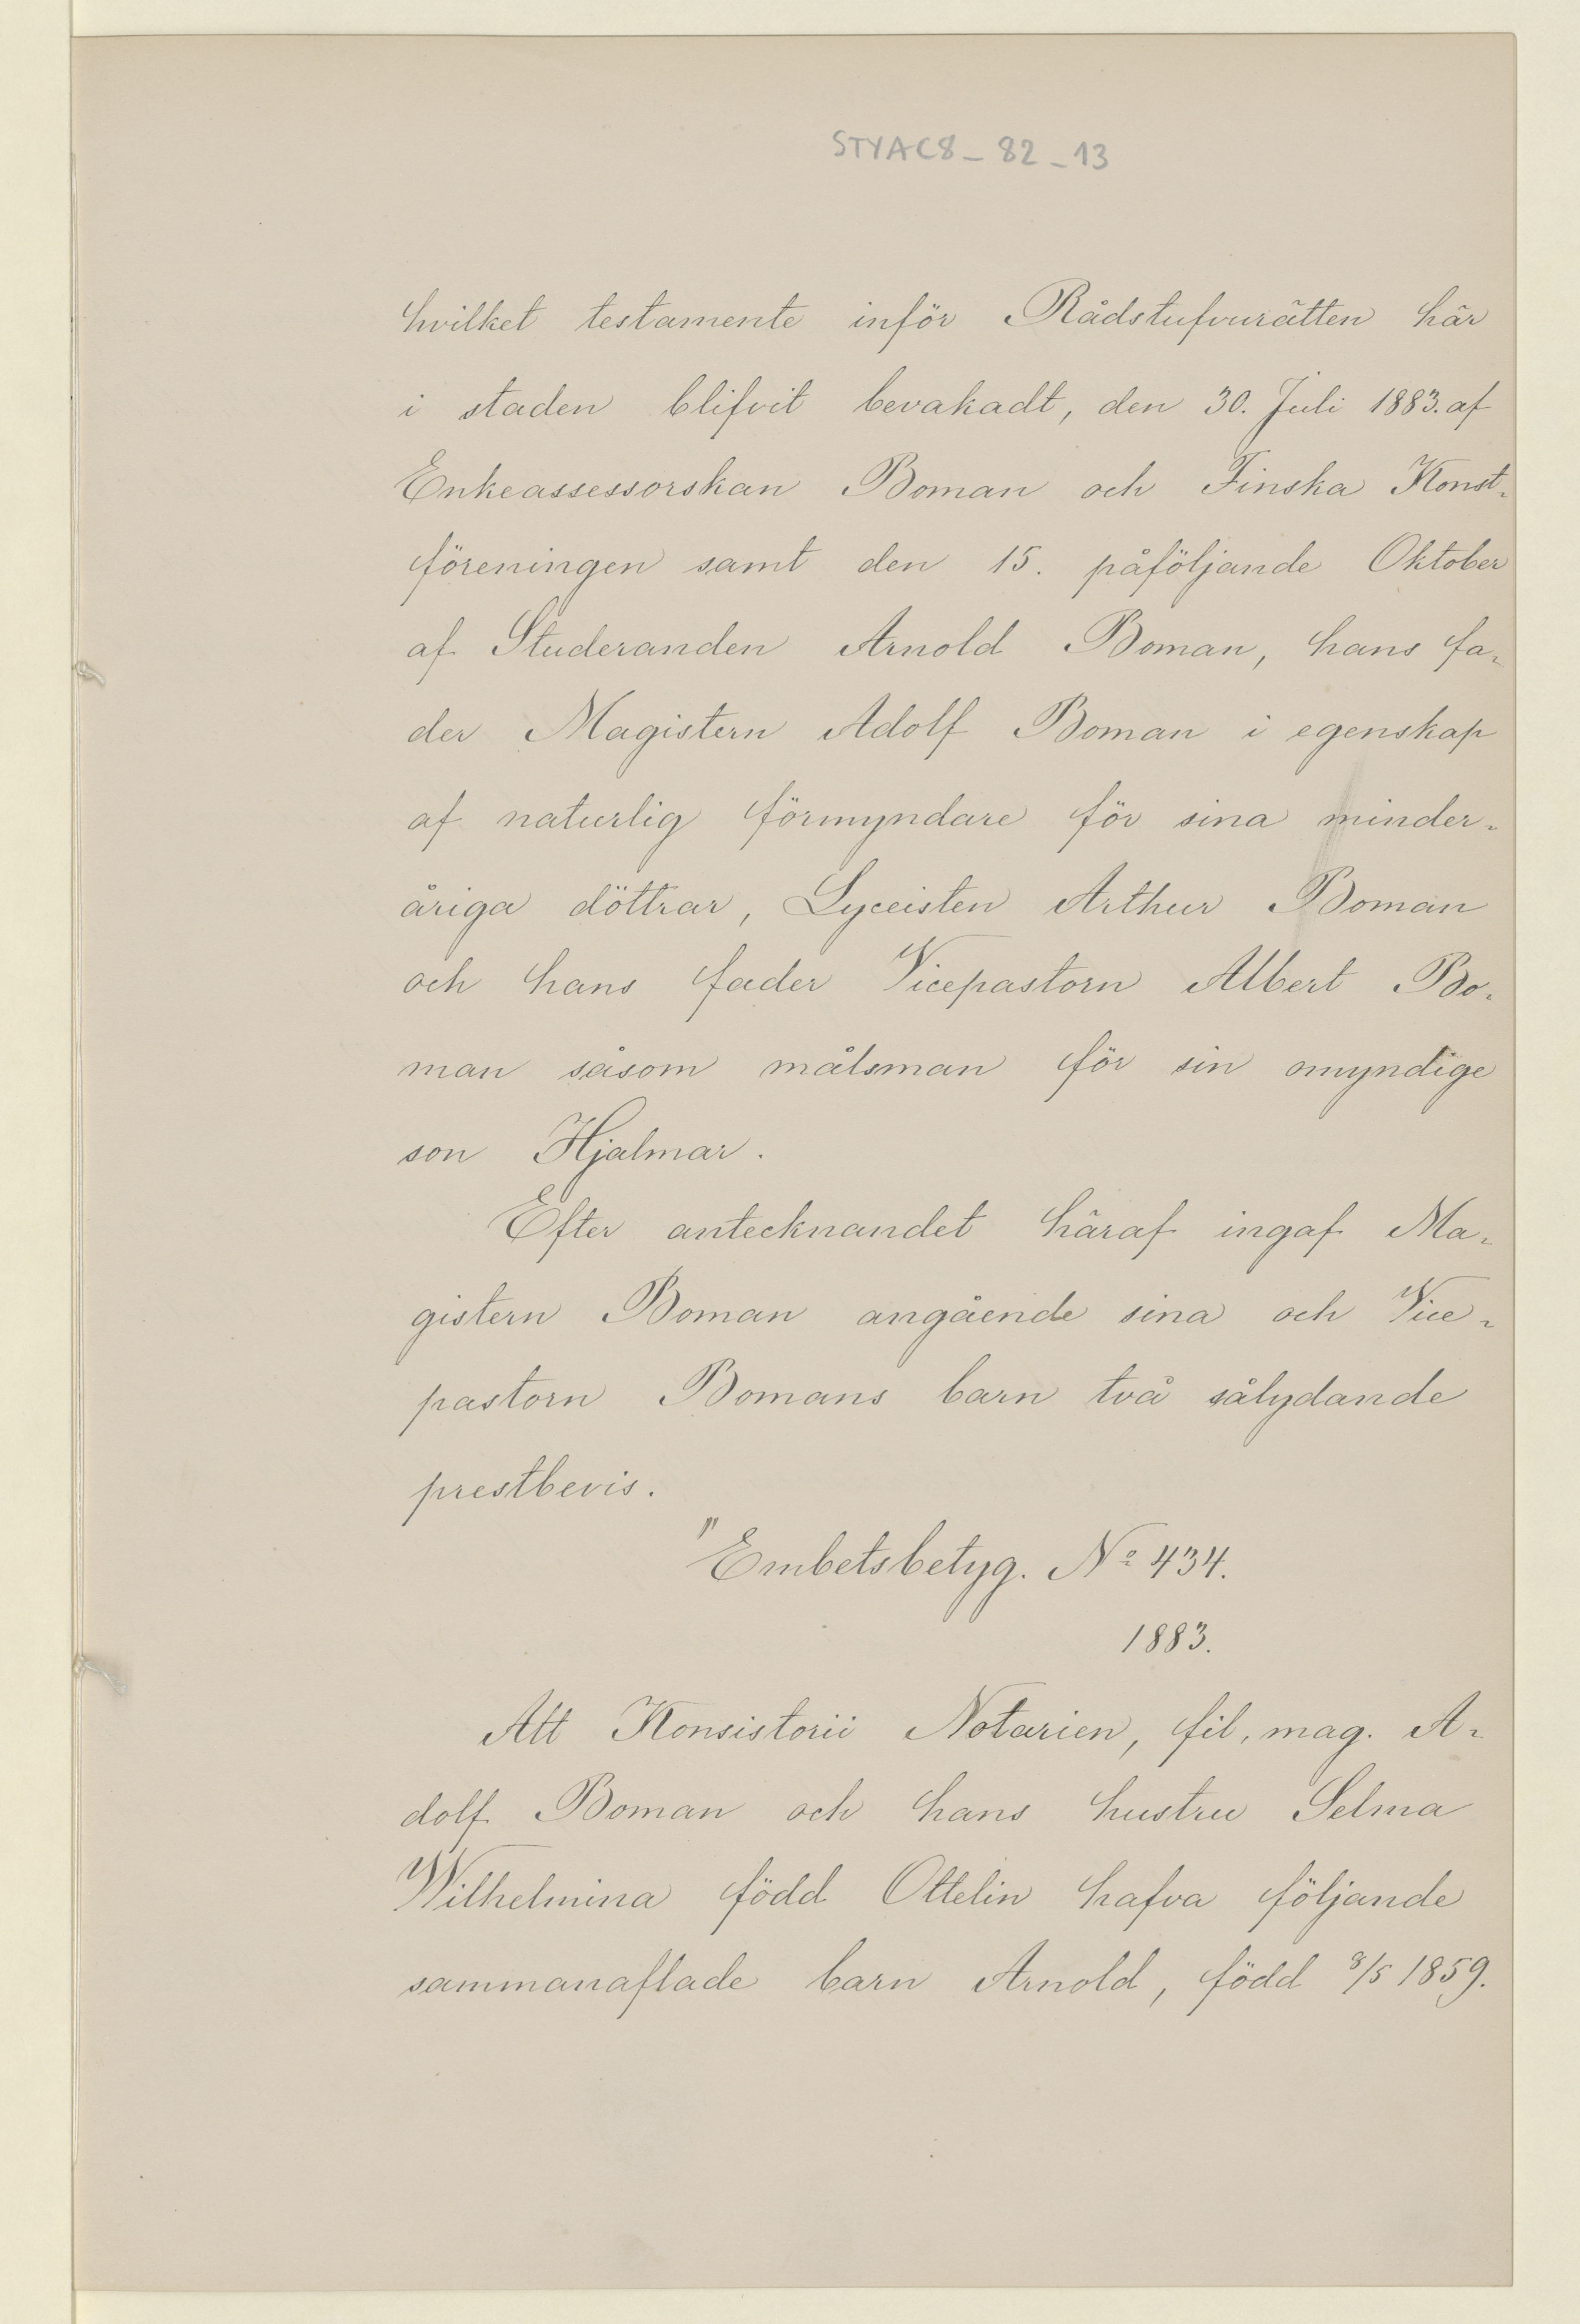 STYAC8_82_13
hvilket testamente inför Rådstufvurätten här
i staden blifvit bevakadt, den 30. Juli 1883. af
Enkeassessorskan Boman och Finska Konst-
föreningen samt den 15. påföljande Oktober
af Studeranden Arnold Boman, hans fa-
der Magistern Adolf Boman i egenskap
af naturlig förmyndare för sina minder-
åriga döttrar, Lyceisten Arthur Boman
och hans fader Vicepastorn Albert Bo-
man såsom målsman för sin omyndige
son Hjalmar.
Efter antecknandet häraf ingaf Ma-
gistern Boman angående sina och Vice-
pastorn Bomans barn två sålydande
prestbevis.
"Embetsbetyg. Nº 434.
1883.
Att Konsistorii Notarien, fil. mag. A-
dolf Boman och hans hustru Selma
Wilhelmina född Ottelin hafva följande
sammanaflade barn Arnold, född 8/5 1859.